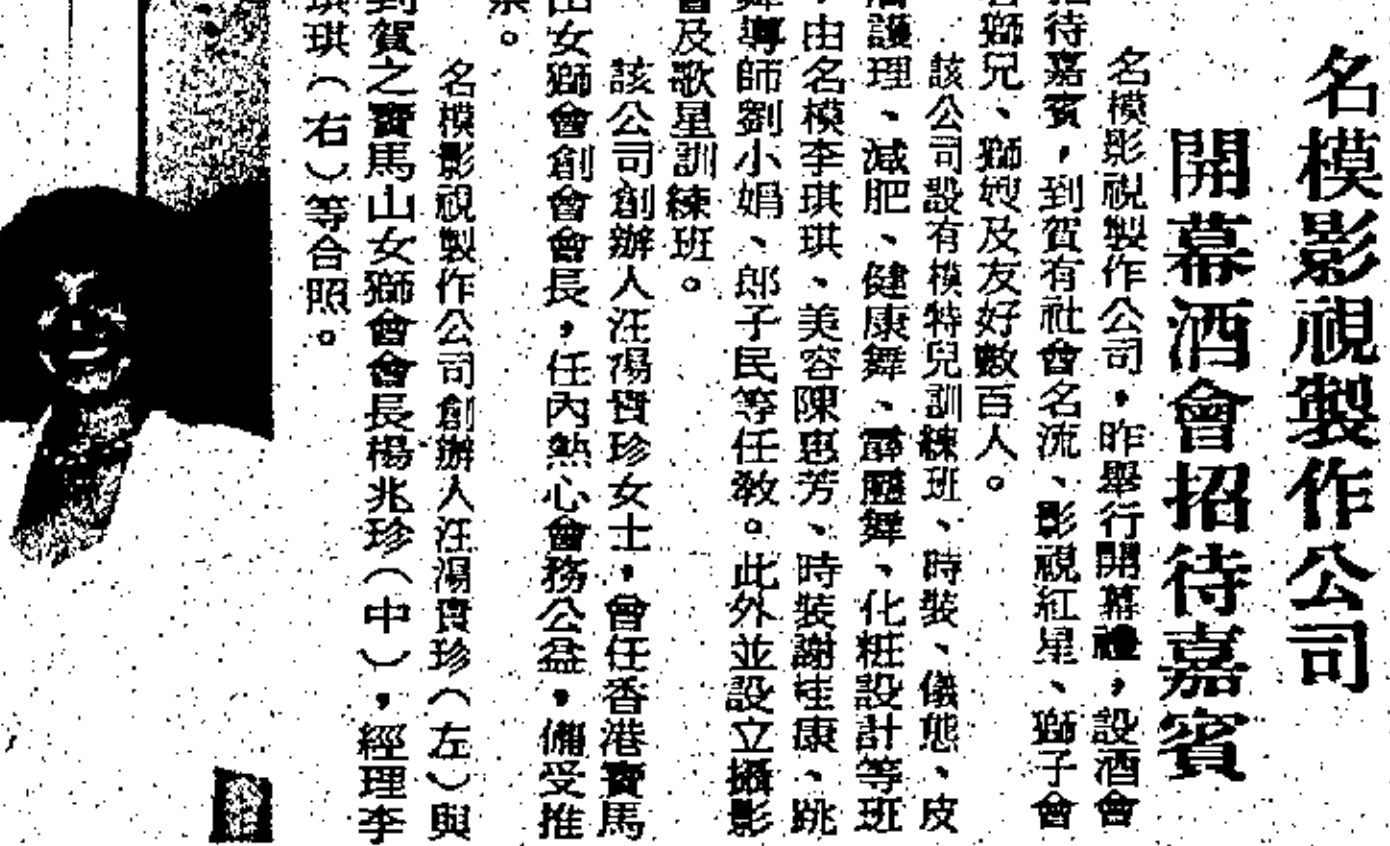 名模影視製作公司
開幕酒會招待嘉賓
名模影視製作公司，昨舉行開幕禮，設酒會
招待嘉賓，到賀有社會名流、影視紅星、獅子會
名獅兄、獅嫂及友好數百人。
該公司設有模特兒訓練班、時裝、儀態、皮
膚護理、減肥、健康舞、霹靂舞、化粧設計等班
，由名模李琪琪、美容陳惠芳、時裝謝桂康、跳
舞導師劉小娟、郎子民等任教。此外並設立攝影
會及歌星訓練班。
該公司創辦人汪湯寶珍女士，曾任香港寶馬
山女獅會創會會長，任內熱心會務公益，備受推
崇。
名模影視製作公司創辦人汪湯寶珍（左）與
到賀之寶馬山女獅會會長楊兆珍（中），經理李
琪琪（右）等合照。